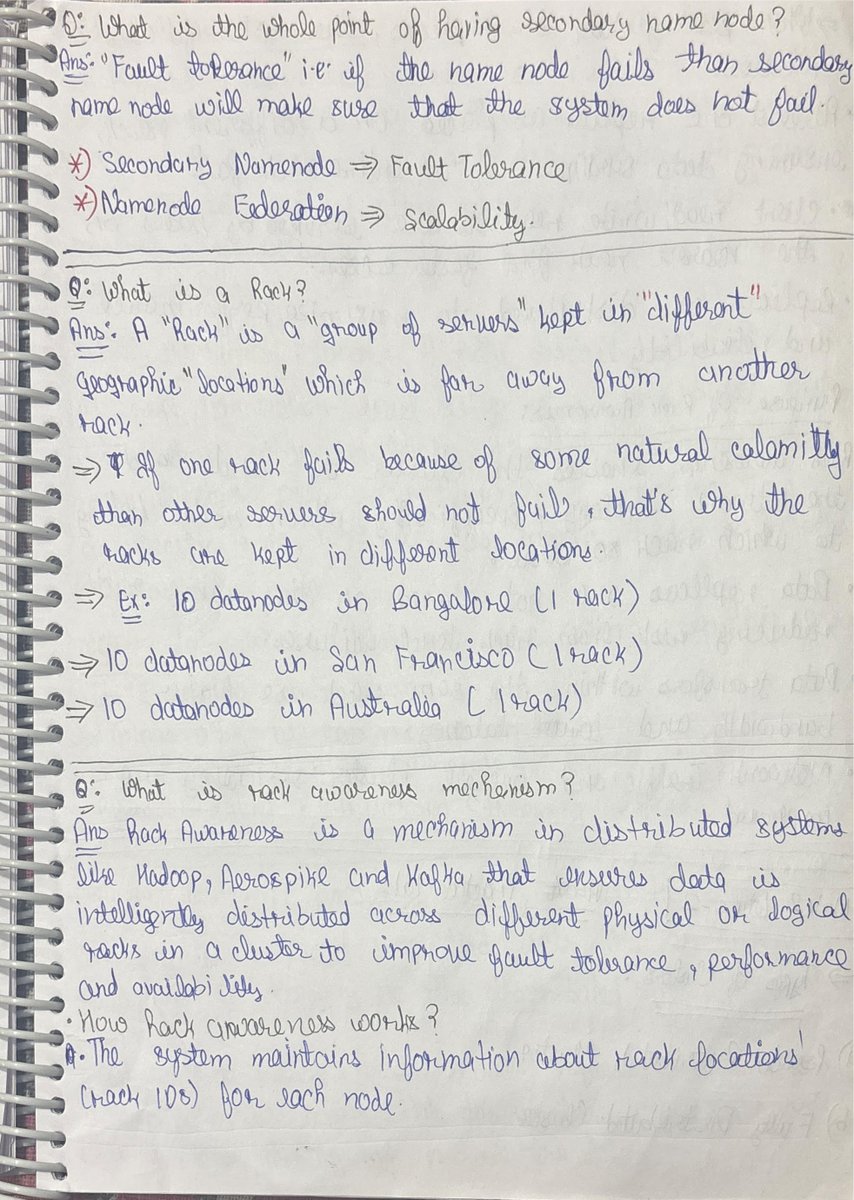 Q: What is the whole point of having secondary name node?
Ans: "Fault tolerance" i.e. if the name node fails than secondary
name node will make sure that the system does not fail.
*) Secondary Namenode ⇒ Fault Tolerance
*) Namenode Federation ⇒ Scalability.
Q: What is a Rack?
Ans: A "Rack" is a "group of servers" kept in "different"
geographic "locations" which is far away from another
rack.
⇒ If one rack fails because of some natural calamitly
than other servers should not fail, that's why the
racks are kept in different locations.
⇒ Ex: 10 datanodes in Bangalore (1 rack)
⇒ 10 datanodes in San Francisco (1 rack)
⇒ 10 datanodes in Australia (1 rack)
Q: What is rack awareness mechenism?
Ans Rack Awareness is a mechanism in distributed systems
like Hadoop, Aerospike and Kafka that ensures data is
intelligently distributed across different physical or logical
racks in a cluster to improve fault tolerance, performance
and availability.
· How Rack awareness works?
· The system maintains information about rack locations'
(rack IDs) for each node.